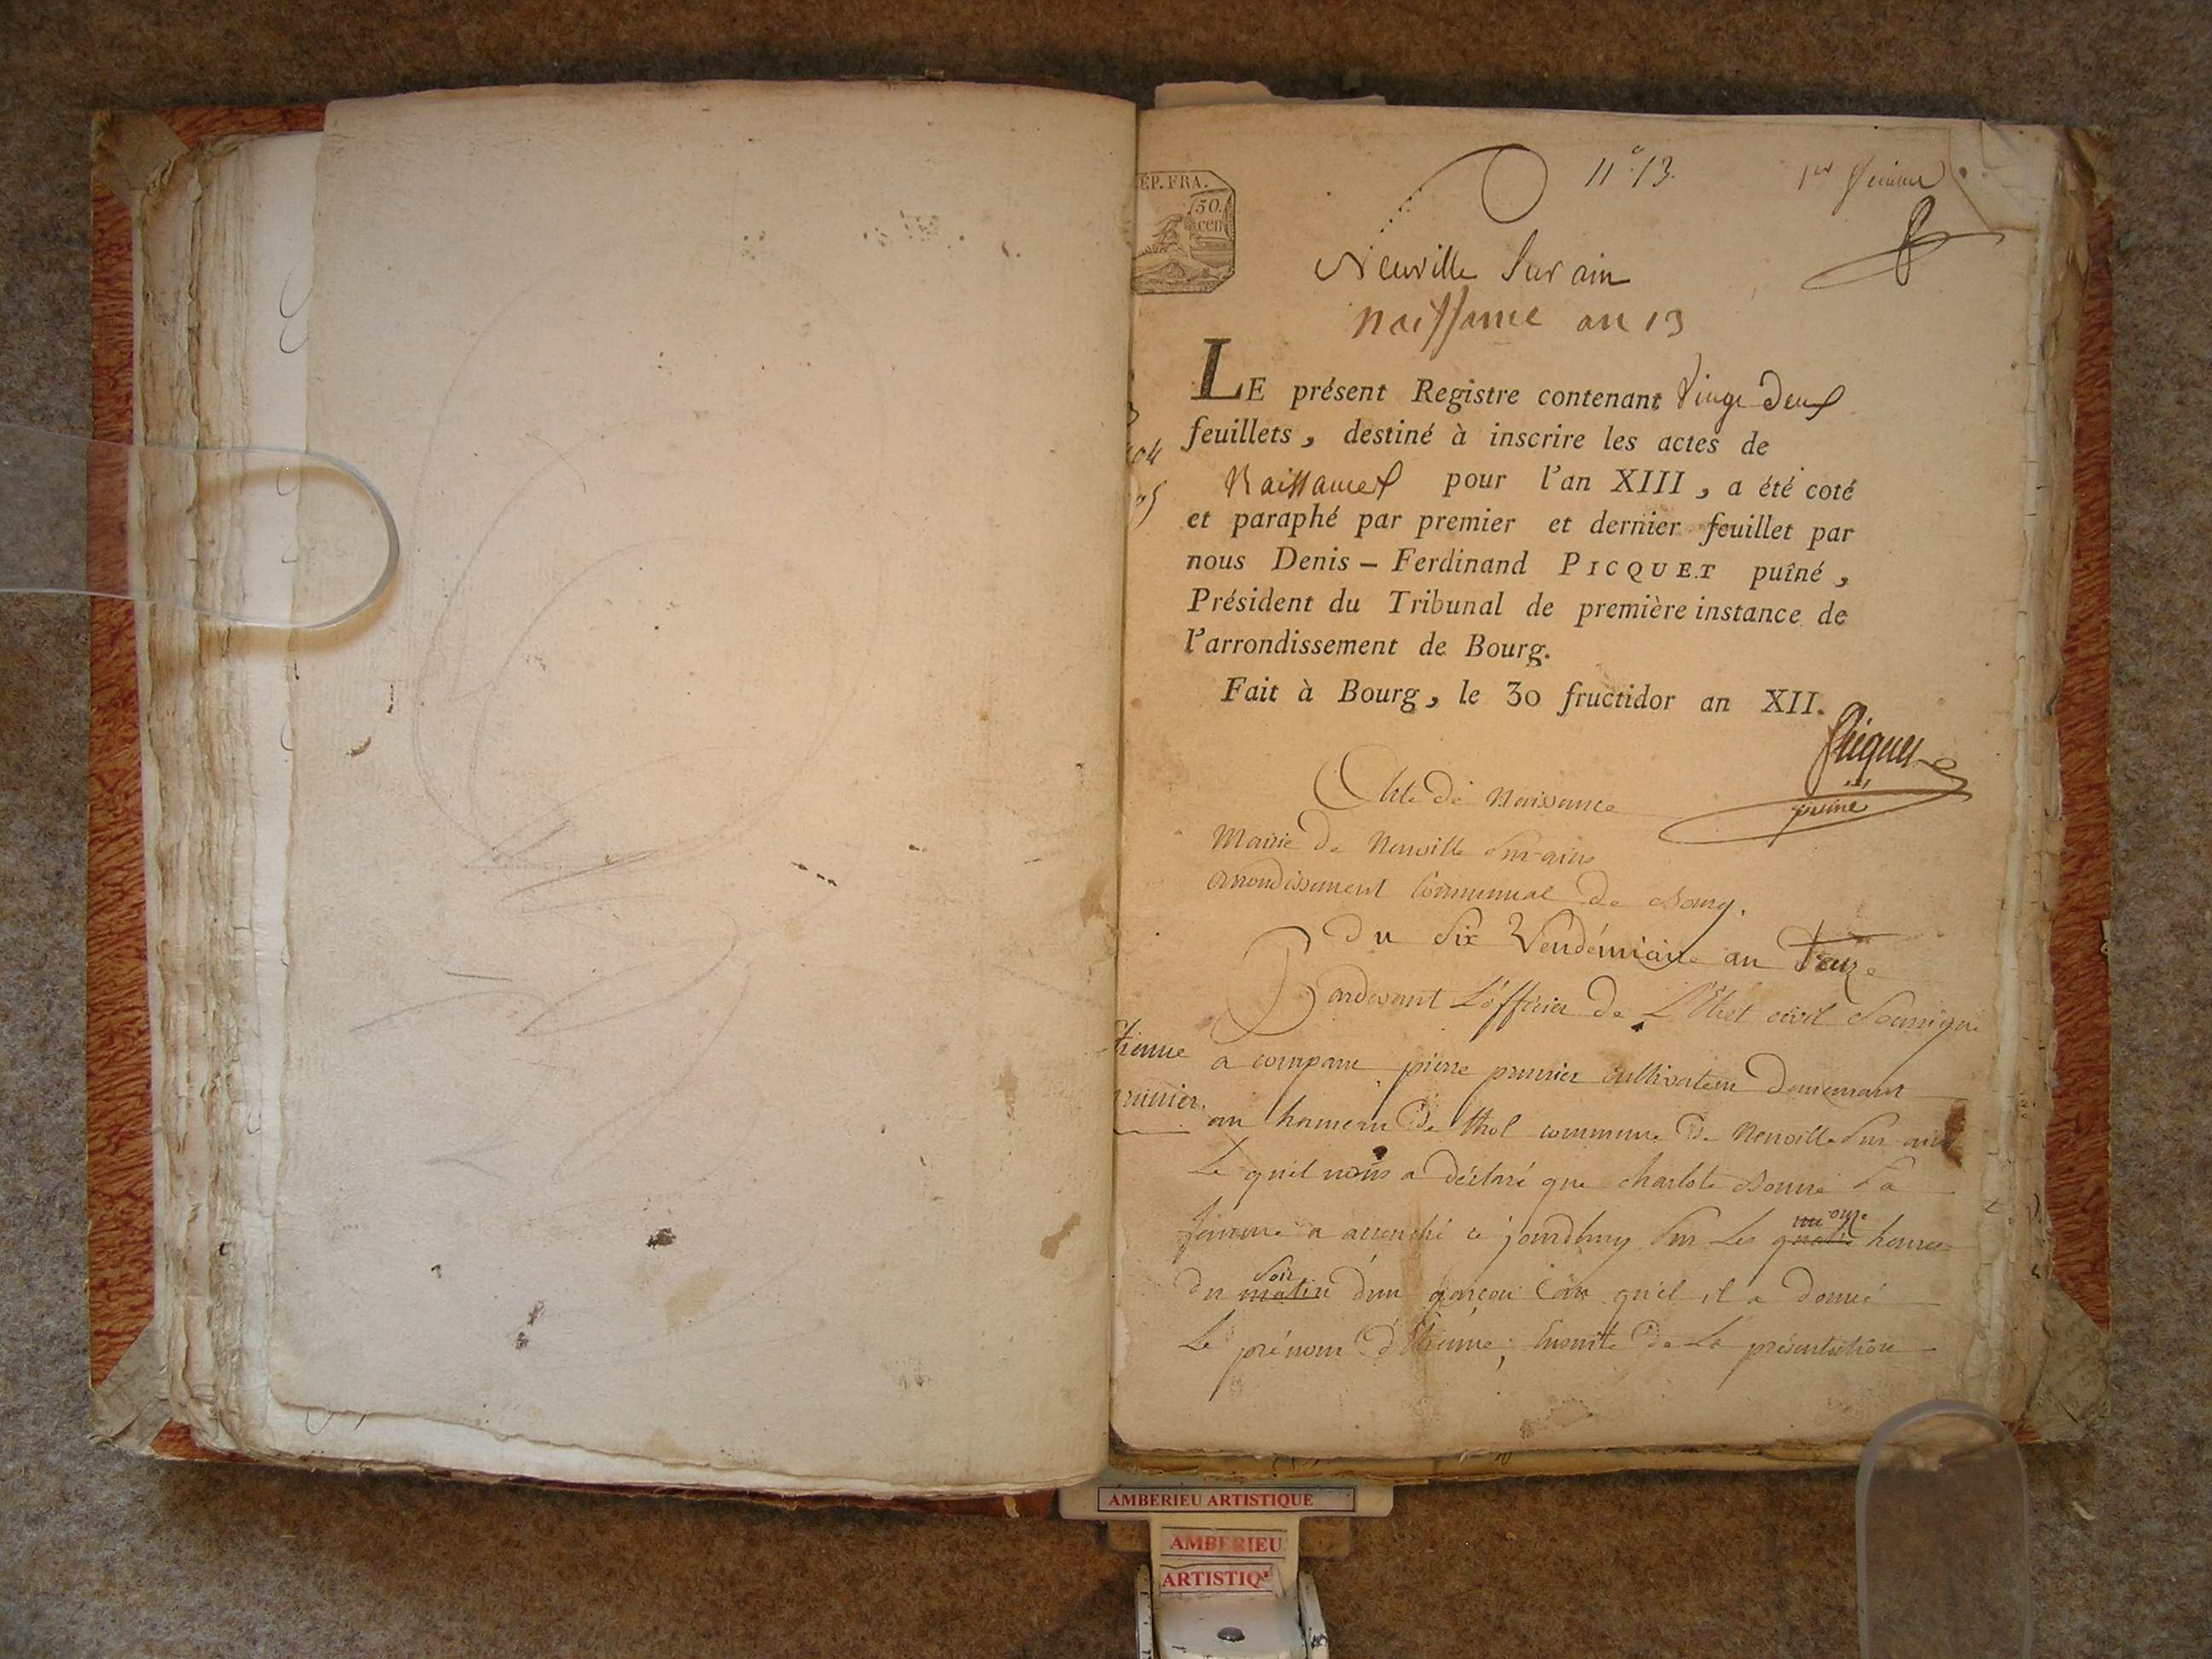 EP. FRA.
50.
cen
11 13.
1er feuillet
Neuville Sur ain
naissance an 13
LE présent Registre contenant Vingt Deux
feuillets, destiné à inscrire les actes de
Naissances pour l'an XIII, a été coté
et paraphé par premier et dernier feuillet par
nous Denis – Ferdinand PICQUET puîné,
Président du Tribunal de première instance de
l'arrondissement de Bourg.
Fait à Bourg, le 30 fructidor an XII.
Picquet
puiné
Acte De Naissance
Mairie De Neuville Sur-ain
arrondissement Communal De Bourg.
Du Six Vendémiaire an Treize
Pardevant L'officier De L'Etat civil Soussigné
a comparu pierre prunier cultivateur Demeurant
au hameau De thol commune De Neuville Sur ain
Le quel nous a Déclaré que charlote Sa
femme a accouché ce jourdhuy Sur Les quatre onze heures
Du matin soir D'un garçon au quel il a Donné
Le prénom D'Etienne; Ensuite De La présentation
tienne
runier.
04
AMBERIEU ARTISTIQUE
AMBERIEU
ARTISTIQ